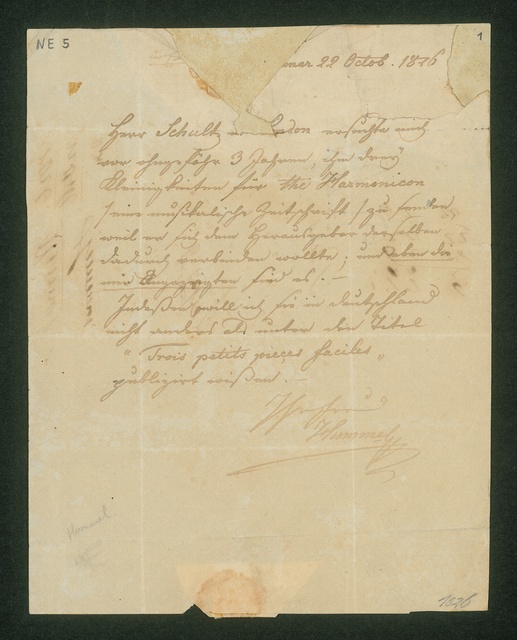 NE 5
1
mar 22 Octob. 1826
Herr Schultz London ersuchte mich
vor ohngefähr 3 Jahren, ihm drey
Kleinigkeiten für the Harmonicon
/eine musikalische Zeitschrift/ zu senden
weil er sich dem Herausgeber derselben
dadurch verbinden wollte; und eben die
mir angezeigten sind es. —
Indeßen will ich sie in Deutschland
nicht anders als unter den Titel
"Trois petits pieçes faciles"
publizirt wißen. —
Ihr Freund
Hummel
Hummel
1826